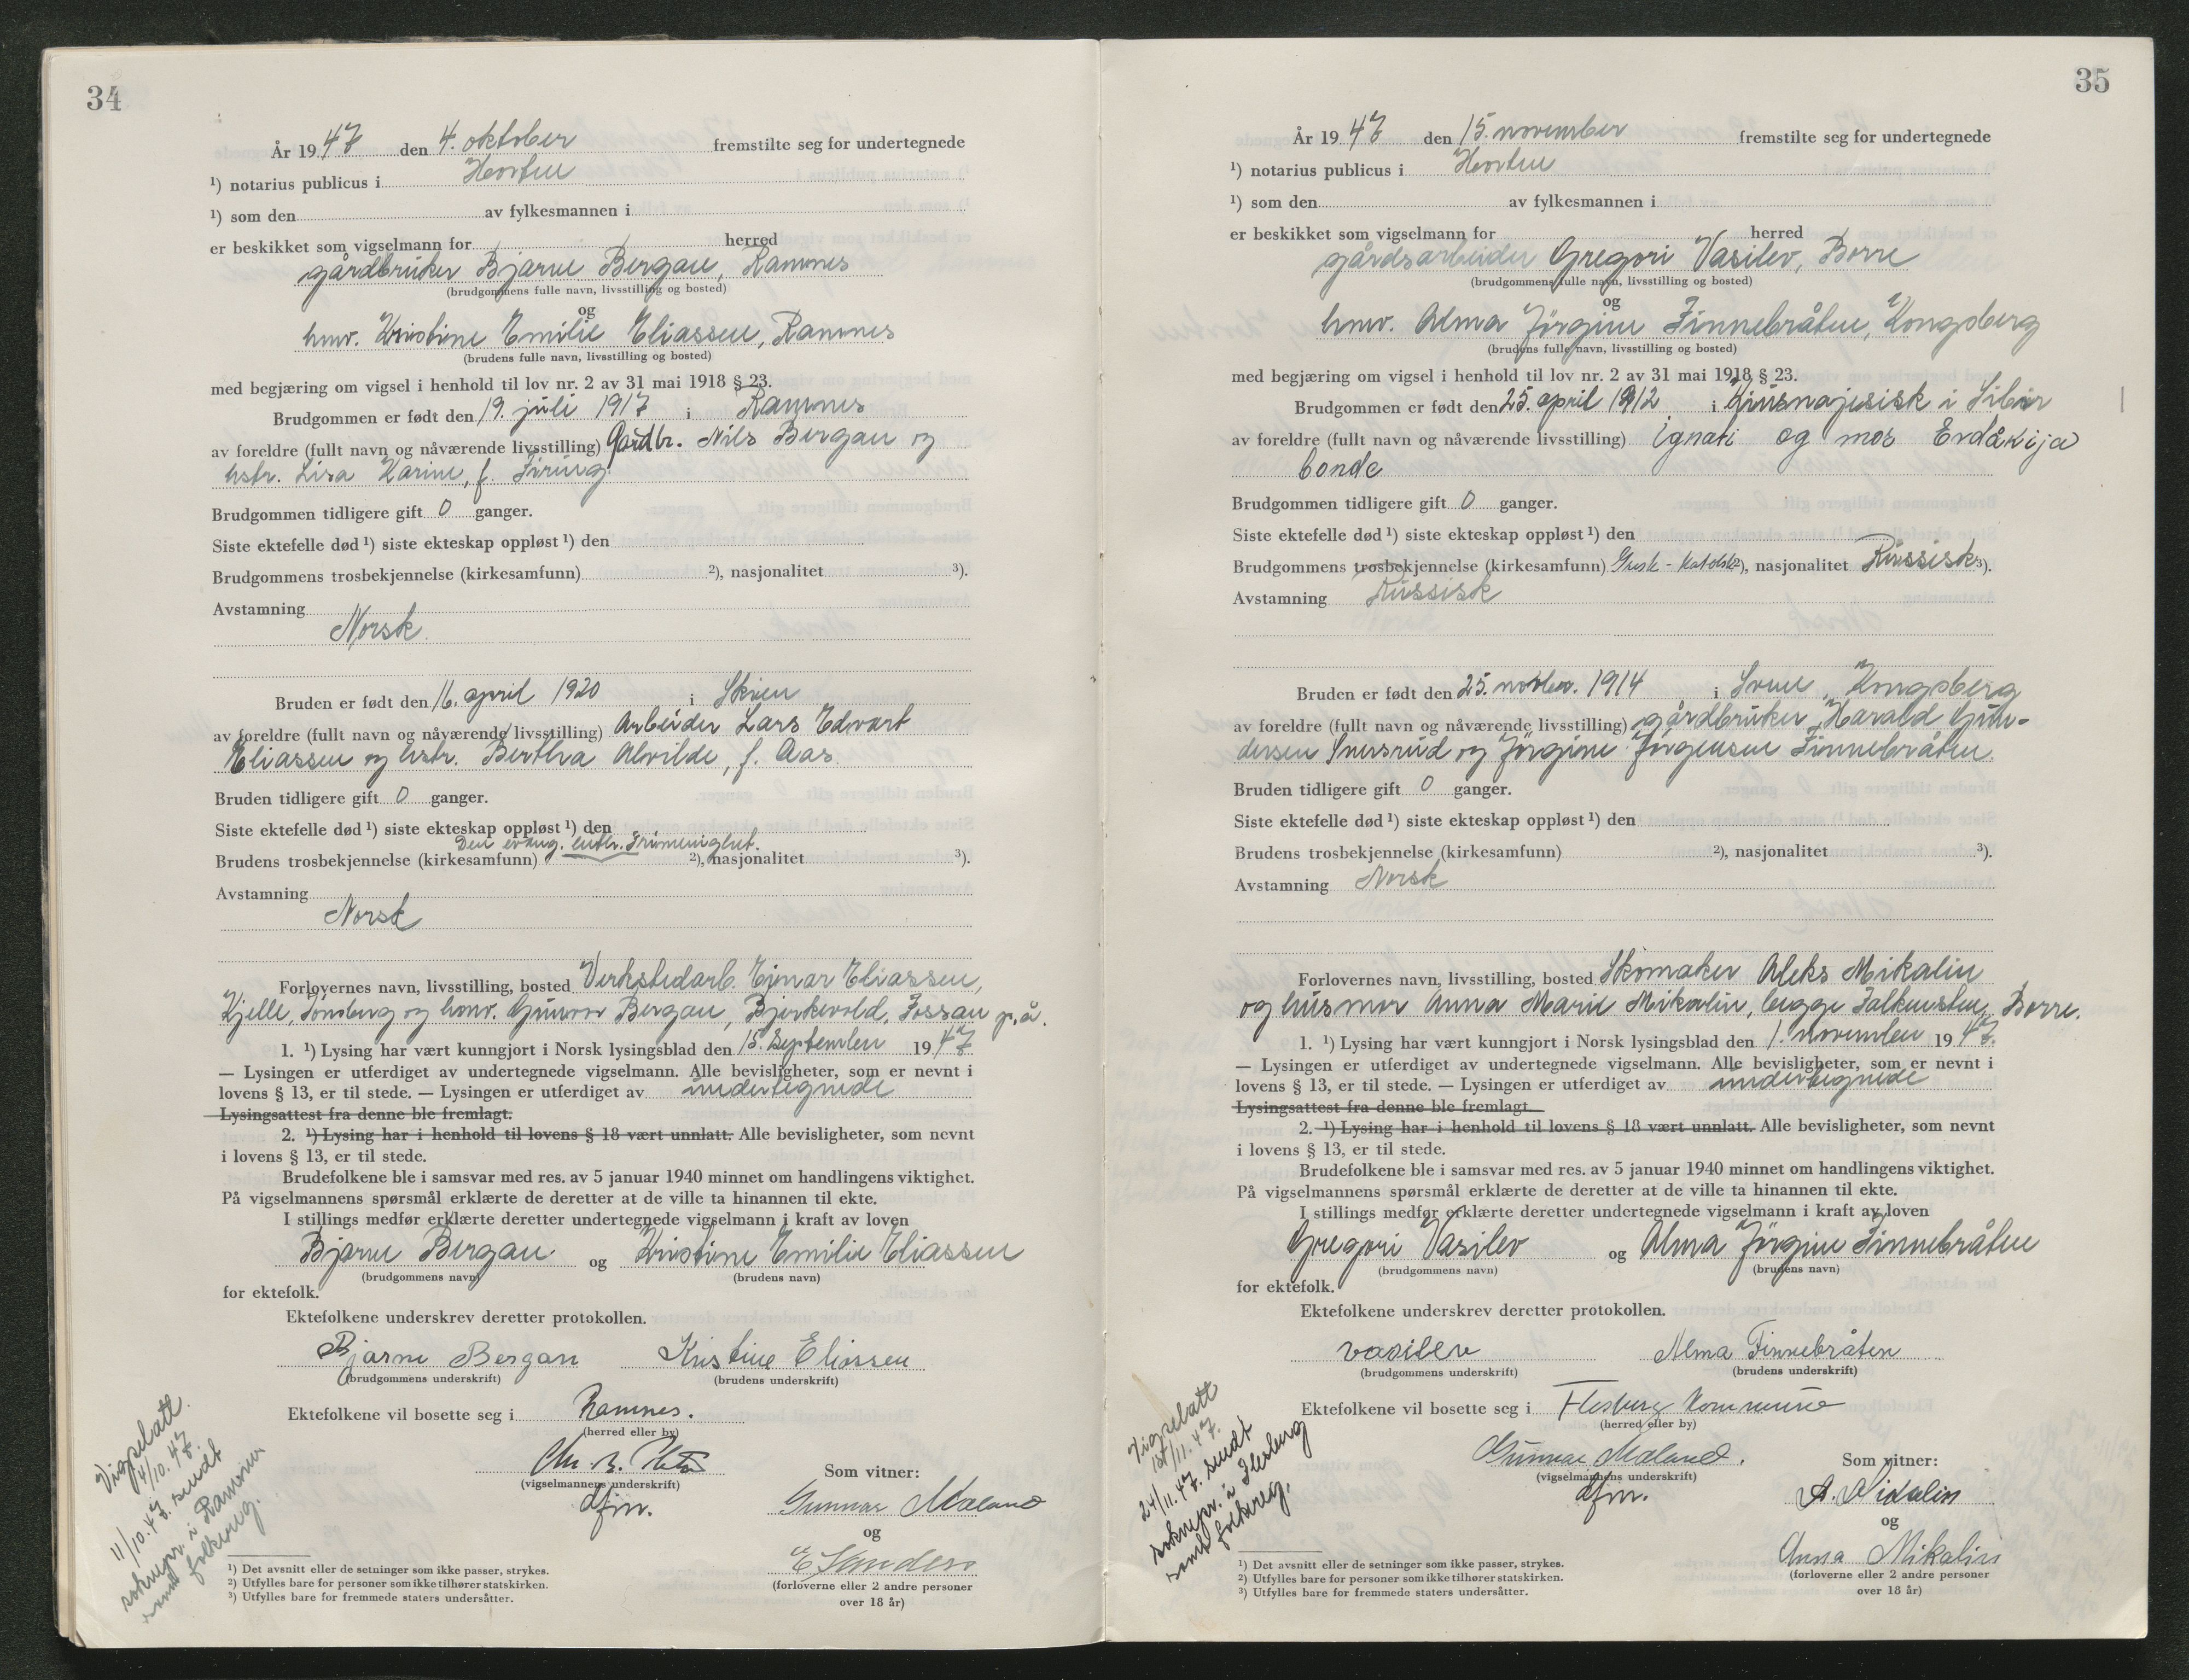 34
År 1947 den 4. oktober fremstilte seg for undertegnede
¹) notarius publicus i Horten
¹) som den av fylkesmannen i
er beskikket som vigselmann for herred
gårdbruker Bjarne Bergan, Ramnes
(brudgommens fulle navn, livsstilling og bosted)
og
hmv. Kristine Emilie Eliassen, Ramnes
(brudens fulle navn, livsstilling og bosted)
med begjæring om vigsel i henhold til lov nr. 2 av 31 mai 1918 § 23.
Brudgommen er født den 19. juli 1917 i Ramnes
av foreldre (fullt navn og nåværende livsstilling) Gardbr. Nils Bergan og
hstr. Lisa Karine, f. Firing.
Brudgommen tidligere gift 0 ganger.
Siste ektefelle død ¹) siste ekteskap oppløst ¹) den
Brudgommens trosbekjennelse (kirkesamfunn) ²), nasjonalitet ³).
Avstamning
Norsk
Bruden er født den 16. april 1920 i Skien
av foreldre (fullt navn og nåværende livsstilling) Arbeider Lars Edvart
Eliassen og hstr. Berthra Alvilde, f. Aas.
Bruden tidligere gift 0 ganger.
Siste ektefelle død ¹) siste ekteskap oppløst ¹) den
Den evang. luth. Frimenighet.
Brudens trosbekjennelse (kirkesamfunn) ²), nasjonalitet ³).
Avstamning
Norsk
Forlovernes navn, livsstilling, bosted Verkstedarb. Ejnar Eliassen,
Kjelle, Tønsberg og hmv. Gunvor Bergan, Bjerkevold, Fossan p.å.
1. ¹) Lysing har vært kunngjort i Norsk lysingsblad den 15. September 1947
— Lysingen er utferdiget av undertegnede vigselmann. Alle bevisligheter, som er nevnt i
lovens § 13, er til stede. — Lysingen er utferdiget av undertegnede
Lysingsattest fra denne ble fremlagt.
2. ¹) Lysing har i henhold til lovens § 18 vært unnlatt. Alle bevisligheter, som nevnt
i lovens § 13, er til stede.
Brudefolkene ble i samsvar med res. av 5 januar 1940 minnet om handlingens viktighet.
På vigselmannens spørsmål erklærte de deretter at de ville ta hinannen til ekte.
I stillings medfør erklærte deretter undertegnede vigselmann i kraft av loven
Bjarne Bergan og Kristine Emilie Eliassen
(brudgommens navn) (brudens navn)
for ektefolk.
Ektefolkene underskrev deretter protokollen.
Bjarne Bergan Kristine Eliassen
(brudgommens underskrift) (brudens underskrift)
Ektefolkene vil bosette seg i Ramnes.
(herred eller by)
(vigselmannens underskrift)
dfm.
Som vitner:
Gunnar Maland
og
(forloverne eller 2 andre personer
over 18 år)
Vigselatt.
4/10.47.
11/10.47. sendt
soknepr. i Ramnes
samt folkereg.
¹) Det avsnitt eller de setninger som ikke passer, strykes.
²) Utfylles bare for personer som ikke tilhører statskirken.
³) Utfylles bare for fremmede staters undersåtter.
35
År 1947 den 15. november fremstilte seg for undertegnede
¹) notarius publicus i Horten
¹) som den av fylkesmannen i
er beskikket som vigselmann for herred
gårdsarbeider Gregori Vasilev, Borre
(brudgommens fulle navn, livsstilling og bosted)
og
hmv. Alma Jörgine Finnebråten, Kongsberg
(brudens fulle navn, livsstilling og bosted)
med begjæring om vigsel i henhold til lov nr. 2 av 31 mai 1918 § 23.
Brudgommen er født den 25. april 1912 i i Sibir
av foreldre (fullt navn og nåværende livsstilling) ignati og mor Evdåkija
bonde
Brudgommen tidligere gift 0 ganger.
Siste ektefelle død ¹) siste ekteskap oppløst ¹) den
Brudgommens trosbekjennelse (kirkesamfunn) Gresk-Katolsk ²), nasjonalitet Russisk ³).
Avstamning Russisk
Bruden er født den 25. novbr. 1914 i Svene, Kongsberg
av foreldre (fullt navn og nåværende livsstilling) gårdbruker Harald Gun-
dersen Snersrud og Jörgine Jörgensen Finnebråten.
Bruden tidligere gift 0 ganger.
Siste ektefelle død ¹) siste ekteskap oppløst ¹) den
Brudens trosbekjennelse (kirkesamfunn) ²), nasjonalitet ³).
Avstamning Norsk
Forlovernes navn, livsstilling, bosted Skomaker Aleks Mikalin
og husmor Anna Marie Mikalin, begge Falkensten, Borre.
1. ¹) Lysing har vært kunngjort i Norsk lysingsblad den 1. november 1947.
— Lysingen er utferdiget av undertegnede vigselmann. Alle bevisligheter, som er nevnt i
lovens § 13, er til stede. — Lysingen er utferdiget av undertegnede
Lysingsattest fra denne ble fremlagt.
2. ¹) Lysing har i henhold til lovens § 18 vært unnlatt. Alle bevisligheter, som nevnt
i lovens § 13, er til stede.
Brudefolkene ble i samsvar med res. av 5 januar 1940 minnet om handlingens viktighet.
På vigselmannens spørsmål erklærte de deretter at de ville ta hinannen til ekte.
I stillings medfør erklærte deretter undertegnede vigselmann i kraft av loven
Gregori Vasilev og Alma Jörgine Finnebråten
(brudgommens navn) (brudens navn)
for ektefolk.
Ektefolkene underskrev deretter protokollen.
vasilev Alma Finnebråten
(brudgommens underskrift) (brudens underskrift)
Ektefolkene vil bosette seg i Flesberg Kommune
(herred eller by)
Gunnar Maland.
(vigselmannens underskrift)
dfm.
Som vitner:
og
Anna Mikalin
(forloverne eller 2 andre personer
over 18 år)
Vigselatt
15/11.47.
24/11.47. sendt
soknepr. i Flesberg
samt folkereg.
¹) Det avsnitt eller de setninger som ikke passer, strykes.
²) Utfylles bare for personer som ikke tilhører statskirken.
³) Utfylles bare for fremmede staters undersåtter.